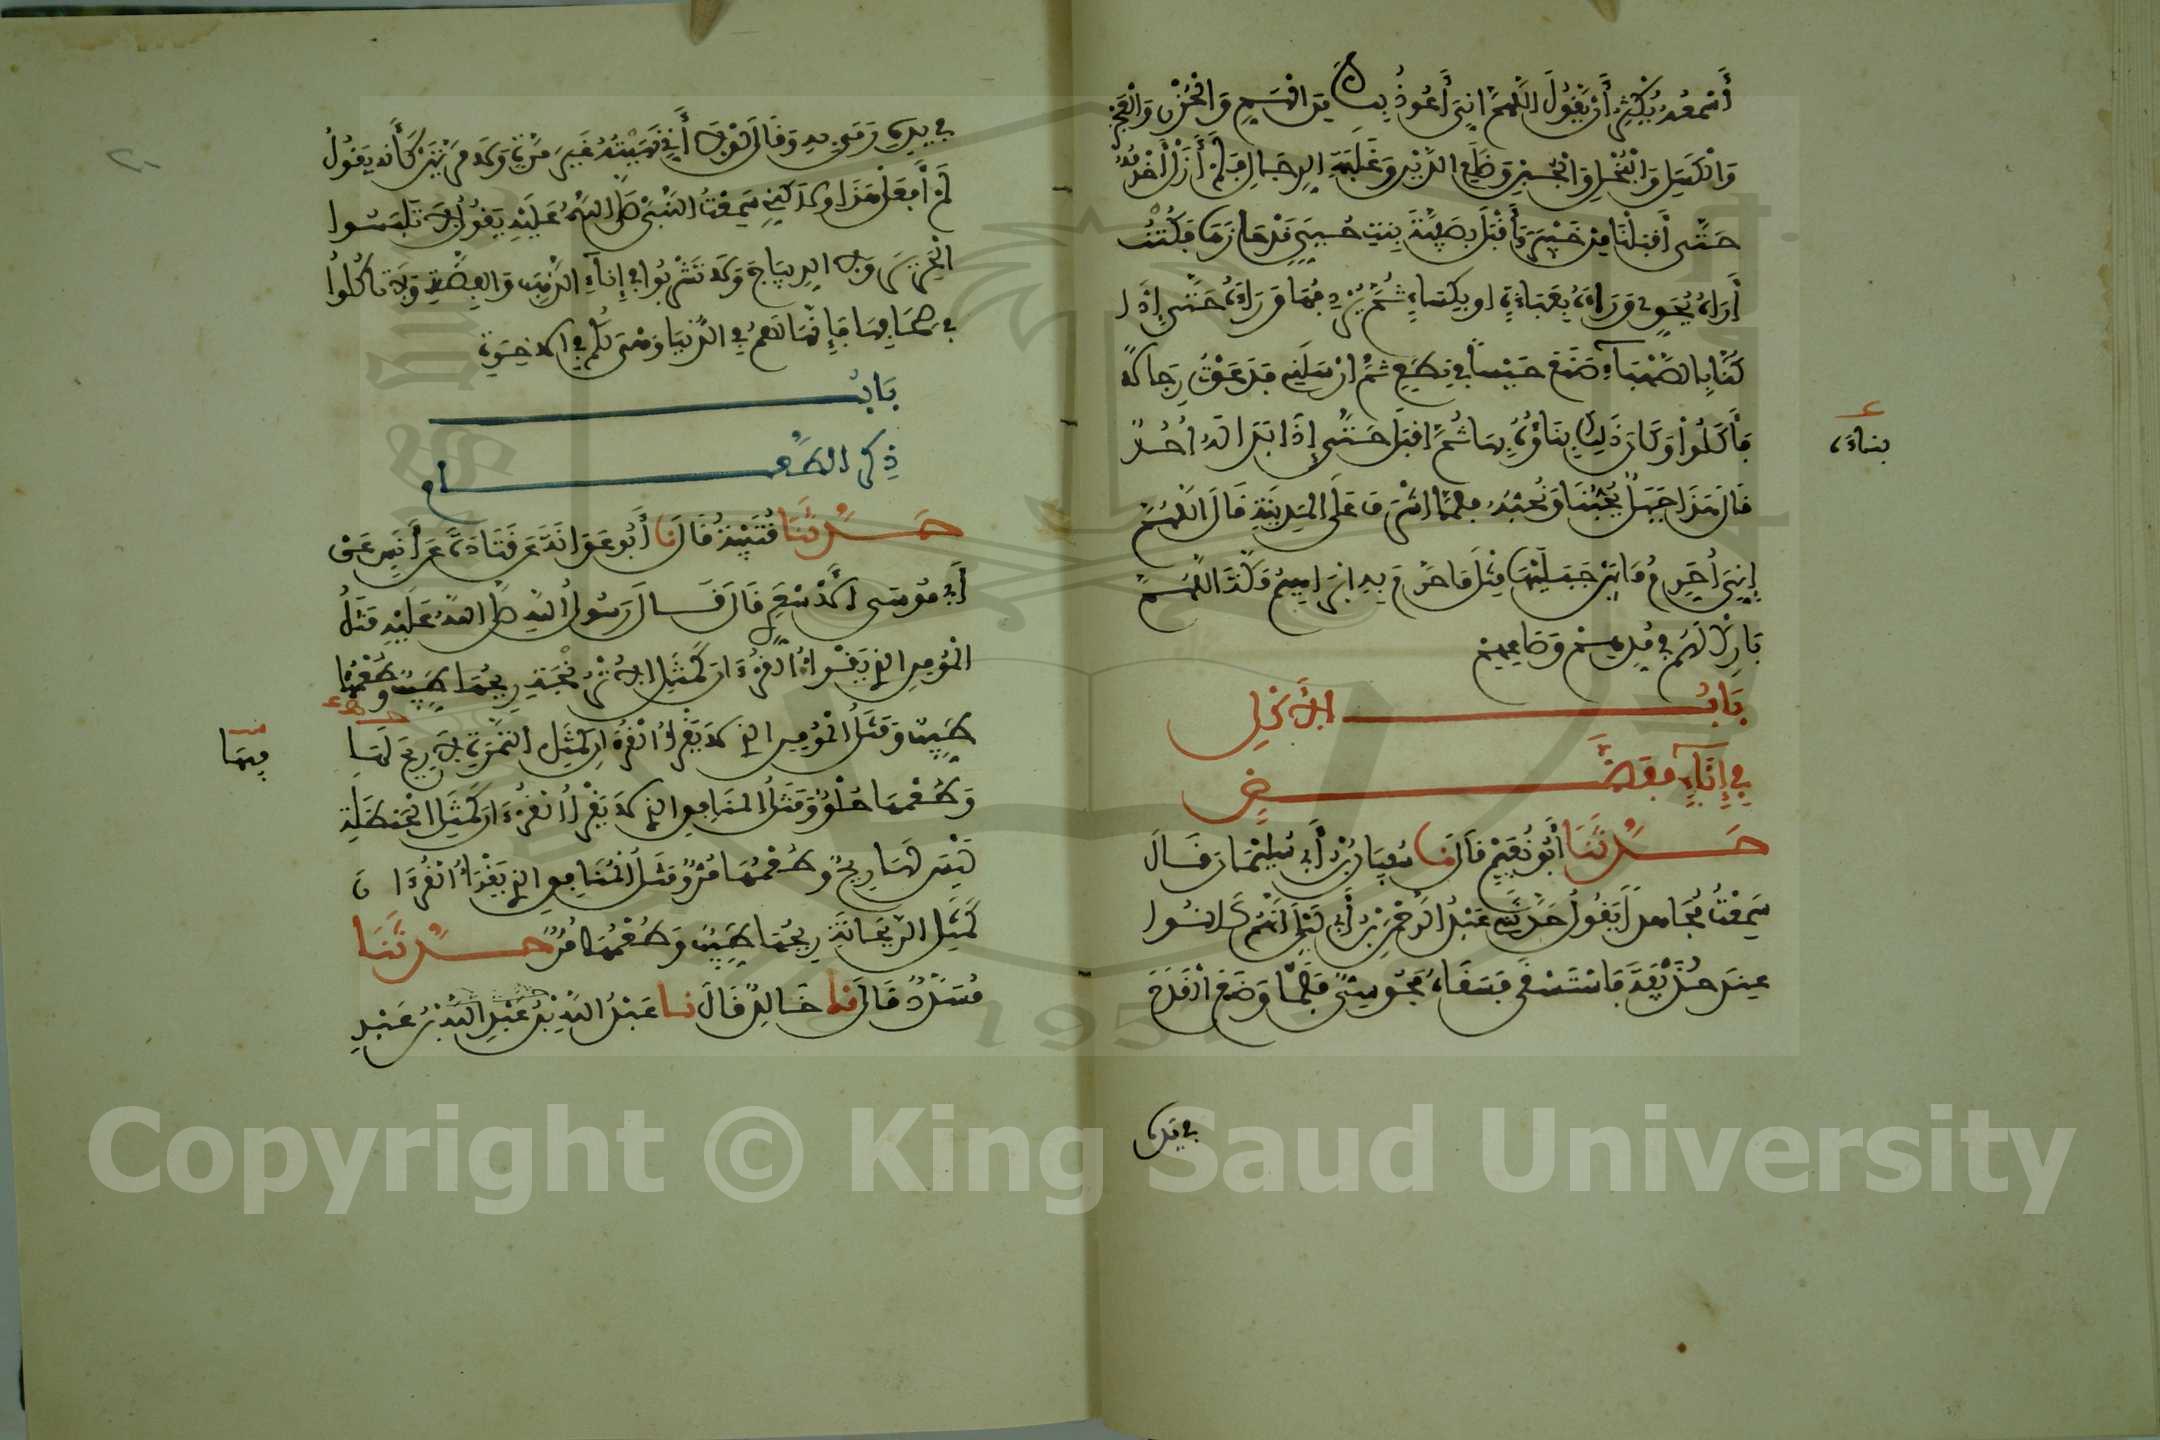 أسمعه يكثر أن يقول اللهم إني أعوذ بك من الهم والحزن والعجز
والكسل والبخل والجبن وضلع الدين وغلبة الرجال فلم أزل أخدمه
حتى أقبلنا من خيبر وأقبل بصفية بنت حيي قد حازها فكنت
أراه يحوي وراءه بعباءة أو بكساء ثم يردفها وراءه حتى إذا
كنا بالصهباء صنع حيسا في نطع ثم أرسلني فدعوت رجالا
فأكلوا وكان ذلك بناؤه بها ثم أقبل حتى إذا بدا له أحد
قال هذا جبل يحبنا ونحبه فلما أشرف على المدينة قال اللهم
إني أحرم ما بين جبليها مثل ما حرم به إبراهيم مكة اللهم
بارك لهم في مدهم وصاعهم
بناءه
باب الأكل
في إناء مفضض
حدثنا أبو نعيم قال نا سفيان بن أبي سليمان قال
سمعت مجاهدا يقول حدثني عبد الرحمن بن أبي ليلى أنهم كانوا
عند حذيفة فاستسقى فسقاه مجوسي فلما وضع القدح
في يده
٢٠
في يده رمى به وقال لولا أني نهيته غير مرة ولا مرتين كأنه يقول
لم أفعل هذا ولاكني سمعت النبي صلى الله عليه يقول لا تلبسوا
الحرير ولا الديباج ولا تشربوا في إناء الذهب والفضة ولا تاكلوا
في صحافها فإنها لهم في الدنيا وهي لكم في الآخرة
باب
ذكر الطعام
حدثنا قتيبة قال نا أبو عوانة عن قتادة عن أنس عن
أبي موسى الأشعري قال قال رسول الله صلى الله عليه مثل
المومن الذي يقرأ القرءان كمثل الأترنجة ريحها طيب وطعمها
طيب ومثل المومن الذي لا يقرأ القرءان كمثل التمرة لا ريح لها
وطعمها حلو ومثل المنافق الذي لا يقرأ القرءان كمثل الحنظلة
ليس لها ريح وطعمها مر ومثل المنافق الذي يقرأ القرءان
كمثل الريحانة ريحها طيب وطعمها مر حدثنا
مسدد قال نا خالد قال نا عبد الله بن عبد الله بن عبد
فيها
Copyright © King Saud University
1957